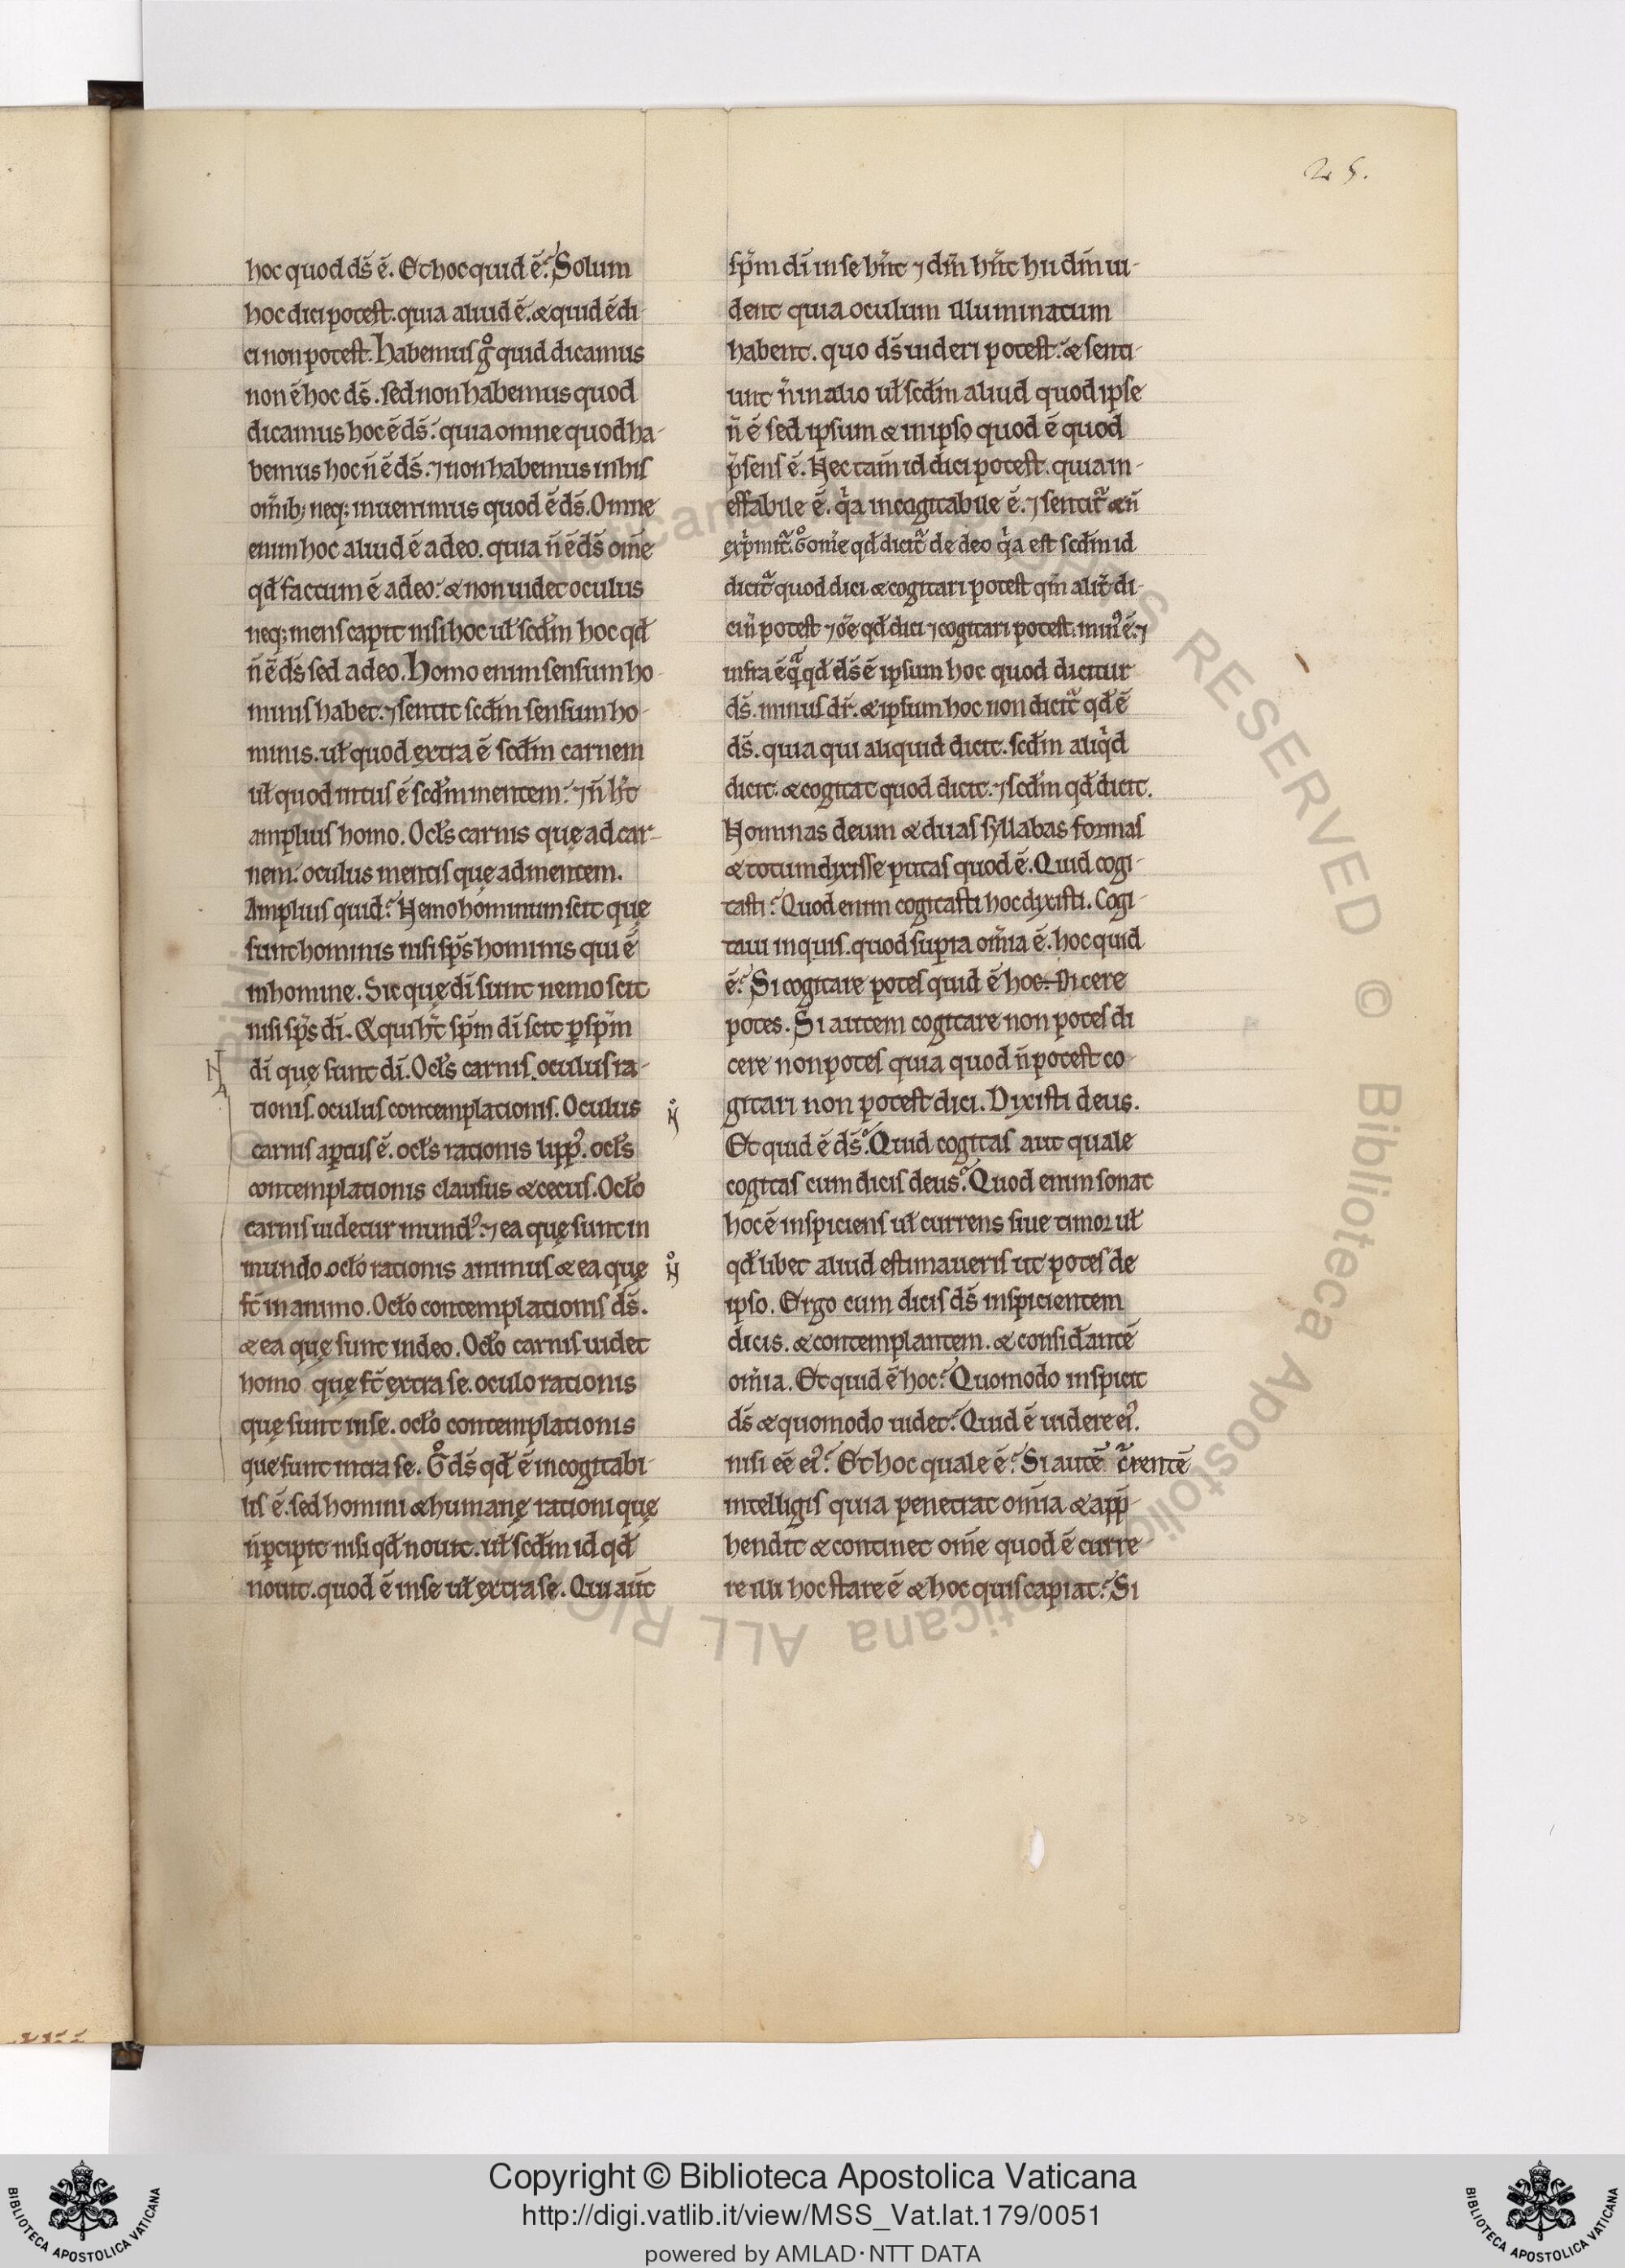 25.
hoc quod ds̄ ē. Et hoc quid ē? Solum
hoc dici potest. quia aliud ē. & quid ē di-
ci non potest. Habemus gͦ quid dicamus
non ē hoc ds̄. sed non habemus quod
dicamus hoc ē ds̄. quia omne quod ha-
bemus hoc n̄ ē ds̄. ⁊ non habemus in his
om̄ib; neq; inuenimus quod ē ds̄. Omne
enim hoc aliud ē a deo. quia n̄ ē ds̄ om̄e
qd̄ factum ē a deo. & non uidet oculus
neq; mens capit nisi hoc ul̄ scd̄m hoc qd̄
n̄ ē ds̄ sed a deo. Homo enim sensum ho-
minis habet. ⁊ sentit scd̄m sensum ho-
minis. ul̄ quod extra ē scd̄m carnem
ul̄ quod intus ē scd̄m mentem. ⁊ n̄ h̄t
amplius homo. Ocl̄s carnis quę ad car-
nem. oculus mentis quę ad mentem.
Amplius quid? Nemo hominum scit quę
sunt hominis nisi sp̄s hominis qui ē
in homine. Sic quę dī sunt nemo scit
nisi sp̄s dī. & qui h̄t sp̄m dī scit ꝑ sp̄m
dī quę sunt dī. Ocl̄s carnis. oculus ra-
tionis. oculus contemplationis. Oculus
carnis aꝑtus ē. ocl̄s rationis lippꝰ. ocl̄s
contemplationis clausus & cecus. Ocl̄o
carnis uidetur mundꝰ. ⁊ ea quę sunt in
mundo. ocl̄o rationis animus & ea quę
st̄ in animo. Ocl̄o contemplationis ds̄.
& ea quę sunt in deo. Ocl̄o carnis uidet
homo quę st̄ extra se. oculo rationis
quę sunt in se. ocl̄o contemplationis
quę sunt intra se. Gͦ ds̄ qd̄ ē incogitabi-
lis ē. sed homini & humanę rationi quę
n̄ ꝑcipit nisi qd̄ nouit. ul̄ scd̄m id qd̄
nouit. quod ē in se ul̄ extra se. Qui aūt
sp̄m dī in se hn̄t ⁊ dm̄ hn̄t hii dm̄ ui-
dent quia oculum illuminatum
habent. quo ds̄ uideri potest. & senti-
unt n̄ in alio ul̄ scd̄m aliud quod ipse
n̄ ē sed ipsum & in ipso quod ē quod
p̄sens ē. Nec tam̄ id dici potest. quia in-
effabile ē. qͥa incogitabile ē. ⁊ sentitᷣ & n̄
exp̄mitᷣ. Gͦ om̄e qd̄ dicitᷣ de deo qͥa est scd̄m id
dicitᷣ quod dici & cogitari potest qm̄ alit̄ di-
ci n̄ potest ⁊ om̄e qd̄ dici ⁊ cogitari potest. minꝰ ē. ⁊
infra ē qͣ qd̄ ds̄ ē ipsum hoc quod dicitur
ds̄. minus dr̄. & ipsum hoc non dicitᷣ qd̄ ē
ds̄. quia qui aliquid dicit. scd̄m aliqͥd
dicit. & cogitat quod dicit. ⁊ scd̄m qd̄ dicit.
Nominas deum & duas syllabas formas
& totum dixisse putas quod ē. Quid cogi-
tasti? Quod enim cogitasti hoc dixisti. Cogi-
taui inquis. quod supra om̄ia ē. hoc quid
ē? Si cogitare potes quid ē hoc. Dicere
potes. Si autem cogitare non potes di
cere non potes quia quod n̄ potest co-
gitari non potest dici. Dixisti deus.
Et quid ē ds̄? Quid cogitas aut quale
cogitas cum dicis deus? Quod enim sonat
hoc ē inspiciens ul̄ currens siue timor ul̄
qd̄ libet aliud estimaueris ut potes de
ipso. Ergo cum dicis ds̄ inspicientem
dicis. & contemplantem. & consid̄antē
om̄ia. Et quid ē hoc? Quomodo inspicit
ds̄ & quomodo uidet? Quid ē uidere eiꝰ.
nisi eē eiꝰ? Et hoc quale ē? Si autē c̄rentē
intelligis quia penetrat om̄ia & app̄-
hendit & continet om̄e quod ē curre-
re illi hoc stare ē & hoc quis capiat? Si
Copyright © Biblioteca Apostolica Vaticana
http://digi.vatlib.it/view/MSS_Vat.lat.179/0051
powered by AMLAD·NTT DATA
BIBLIOTECA APOSTOLICA VATICANA
BIBLIOTECA APOSTOLICA VATICANA